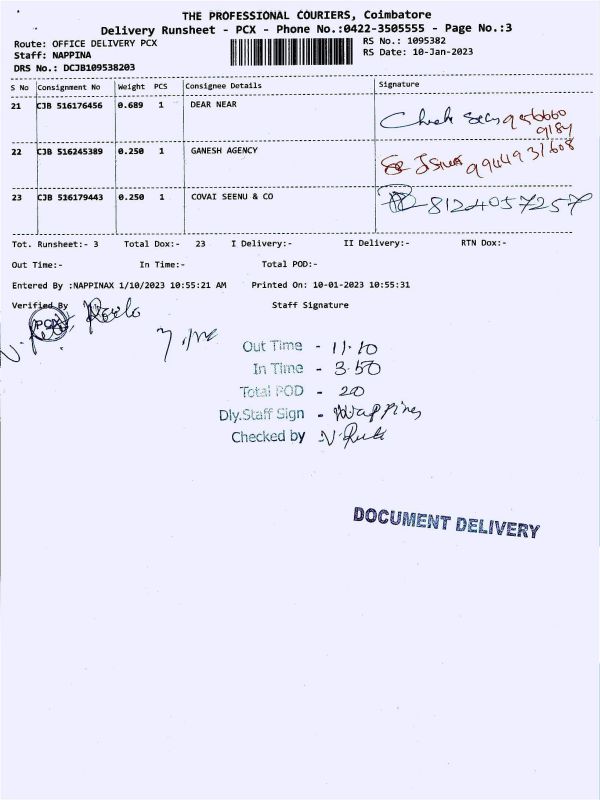 THE PROFESSIONAL COURIERS, Coimbatore
Delivery Runsheet - PCX - Phone No.:0422-3505555 - Page No.:3
Route: OFFICE DELIVERY PCX
RS No.: 1095382
Staff: NAPPINA
RS Date: 10-Jan-2023
DRS No.: DCJB109538203
S No Consignment No Weight PCS Consignee Details Signature
21 CJB 516176456 0.689 1 DEAR NEAR
9184
22 CJB 516245389 0.250 1 GANESH AGENCY 9944931608
23 CJB 516179443 0.250 1 COVAI SEENU & CO 8124057257
Tot. Runsheet:- 3 Total Dox:- 23 I Delivery:- II Delivery:- RTN Dox:-
Out Time:- In Time:- Total POD:-
Entered By :NAPPINAX 1/10/2023 10:55:21 AM Printed On: 10-01-2023 10:55:31
Verified By Staff Signature
PCX
Out Time - 11.10
In Time - 3.50
Total POD - 20
Dly.Staff Sign - Nappina
Checked by
DOCUMENT DELIVERY